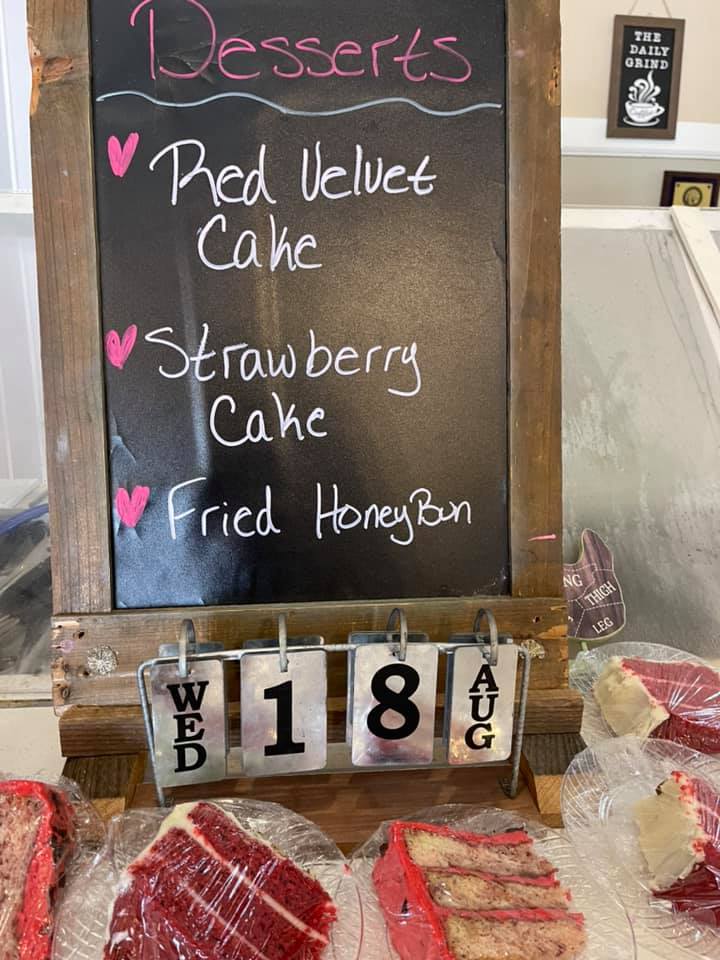 Desserts
THE
DAILY
GRIND
Red Velvet
Cake
Strawberry
Cake
Fried HoneyBun
THIGH
LEG
WED 18 AUG